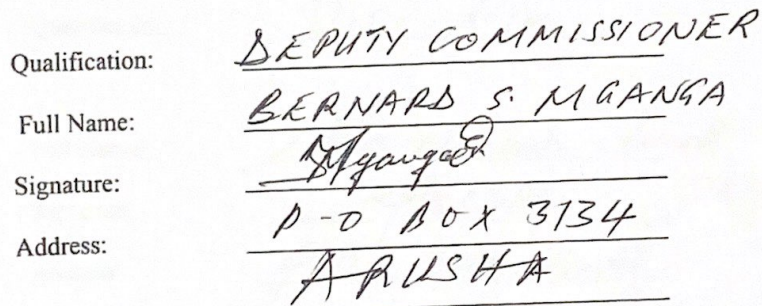 Qualification: DEPUTY COMMISSIONER
Full Name: BERNARD S. MGANGA
Signature: Mganga
Address: P-O BOX 3134
ARUSHA